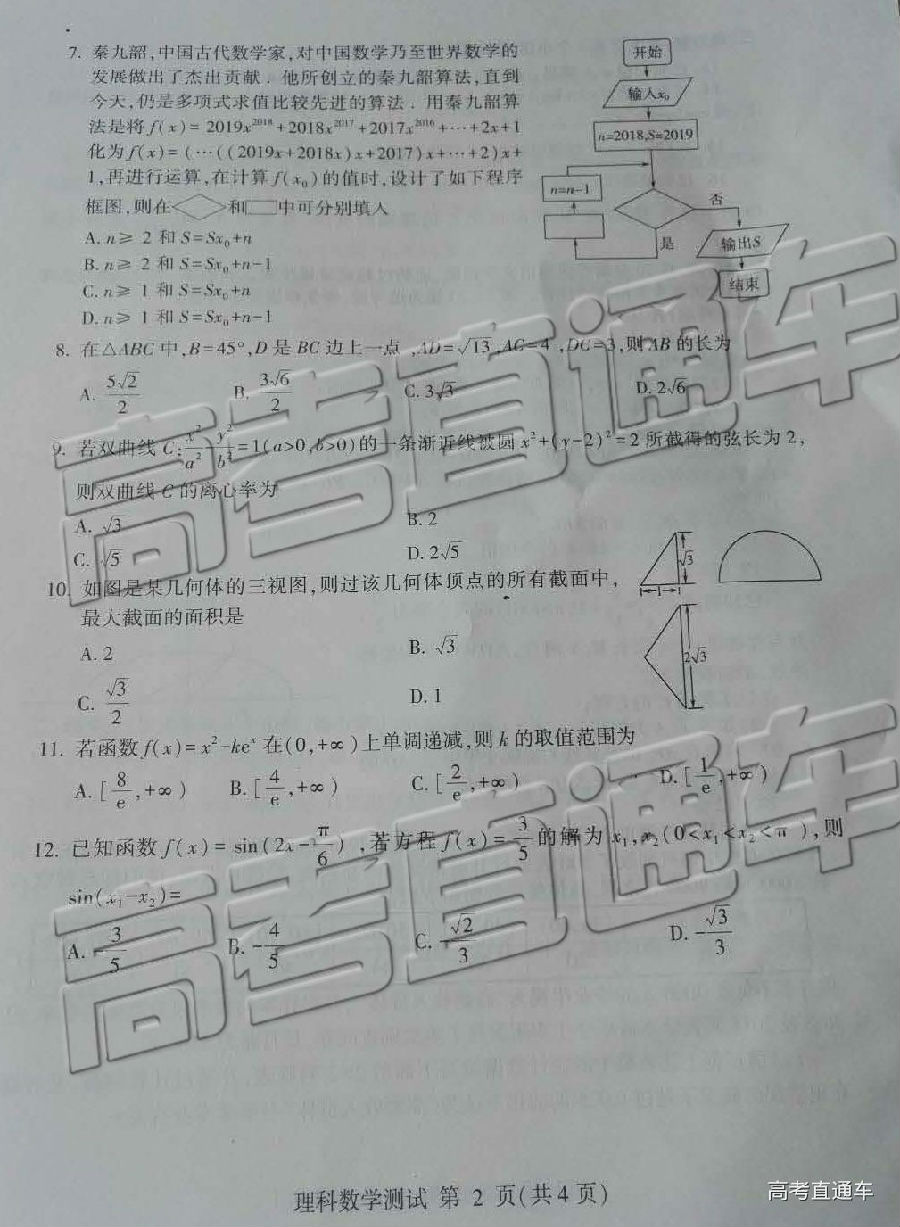 7. 秦九韶,中国古代数学家,对中国数学乃至世界数学的
发展做出了杰出贡献．他所创立的秦九韶算法,直到
今天,仍是多项式求值比较先进的算法．用秦九韶算
法是将f(x)=2019x²⁰¹⁸+2018x²⁰¹⁷+2017x²⁰¹⁶+…+2x+1
化为f(x)=(…((2019x+2018x)x+2017)x+…+2)x+
1,再进行运算,在计算f(x₀)的值时,设计了如下程序
框图,则在◇和▭中可分别填入
A. n≥ 2 和 S=Sx₀+n
B. n≥ 2 和 S=Sx₀+n-1
C. n≥ 1 和 S=Sx₀+n
D. n≥ 1 和 S=Sx₀+n-1
开始
输入x₀
n=2018,S=2019
n=n-1
否
是
输出S
结束
8. 在△ABC中,B=45°,D是BC边上一点,AD=√13,AC=4,DC=3,则AB的长为
A. 5√2/2 B. 3√6/2 C. 3√3 D. 2√6
9. 若双曲线C:x²/a²-y²/b²=1(a>0,b>0)的一条渐近线被圆x²+(y-2)²=2所截得的弦长为2,
则双曲线C的离心率为
A. √3 B. 2
C. √5 D. 2√5
10. 如图是某几何体的三视图,则过该几何体顶点的所有截面中,
最大截面的面积是
A. 2 B. √3
C. √3/2 D. 1
√3
1 1
2√3
11. 若函数f(x)=x²-keˣ在(0,+∞)上单调递减,则k的取值范围为
A. [8/e,+∞) B. [4/e,+∞) C. [2/e,+∞) D. [1/e,+∞)
12. 已知函数f(x)=sin(2x-π/6),若方程f(x)=3/5的解为x₁,x₂(0<x₁<x₂<π),则
sin(x₁-x₂)=
A. -3/5 B. -4/5 C. -√2/3 D. -√3/3
理科数学测试 第 2 页(共4页)
高考直通车
高考直通车
高考直通车